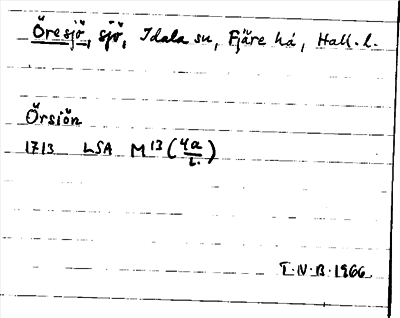 Öresjö, sjö, Idala sn, Fjäre hd, Hall. l.
Örsiön
1713 LSA M 13 (4a/L.)
T.N.B. 1966